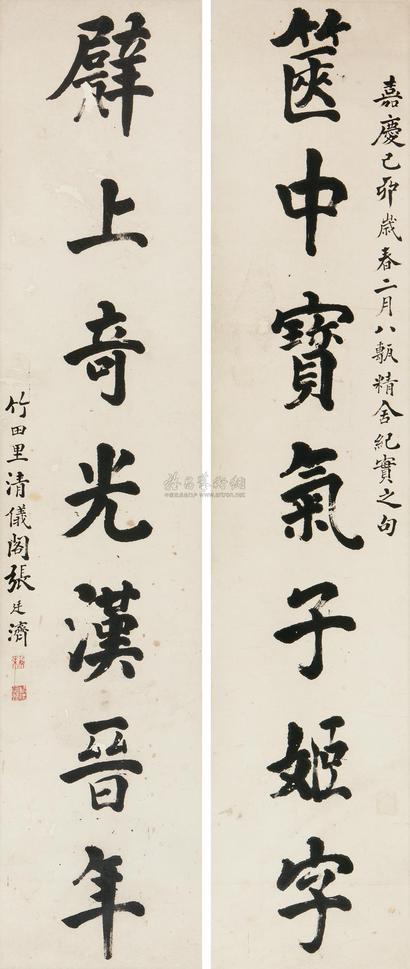 嘉慶己卯歲春二月八甎精舍紀實之句
篋中寶氣子姬字
甓上奇光漢晉年
竹田里清儀閣張廷濟
www.artron.net